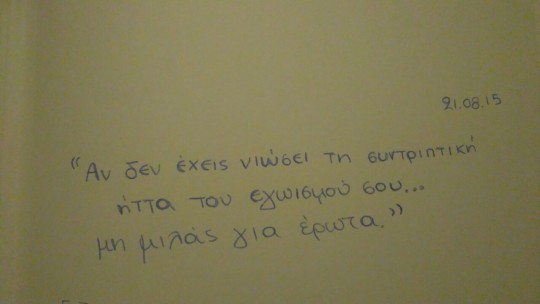 21.08.15
“Αν δεν έχεις νιώσει τη συντριπτική
ήττα του εγωισμού σου...
μη μιλάς για έρωτα.”